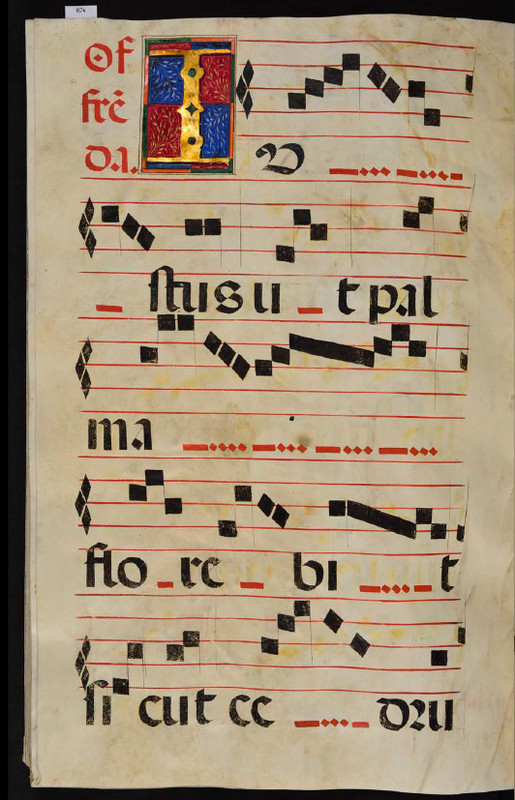 of
frē
da.
I U
stus ut pal
ma
flo re bi t
si cut ce dru